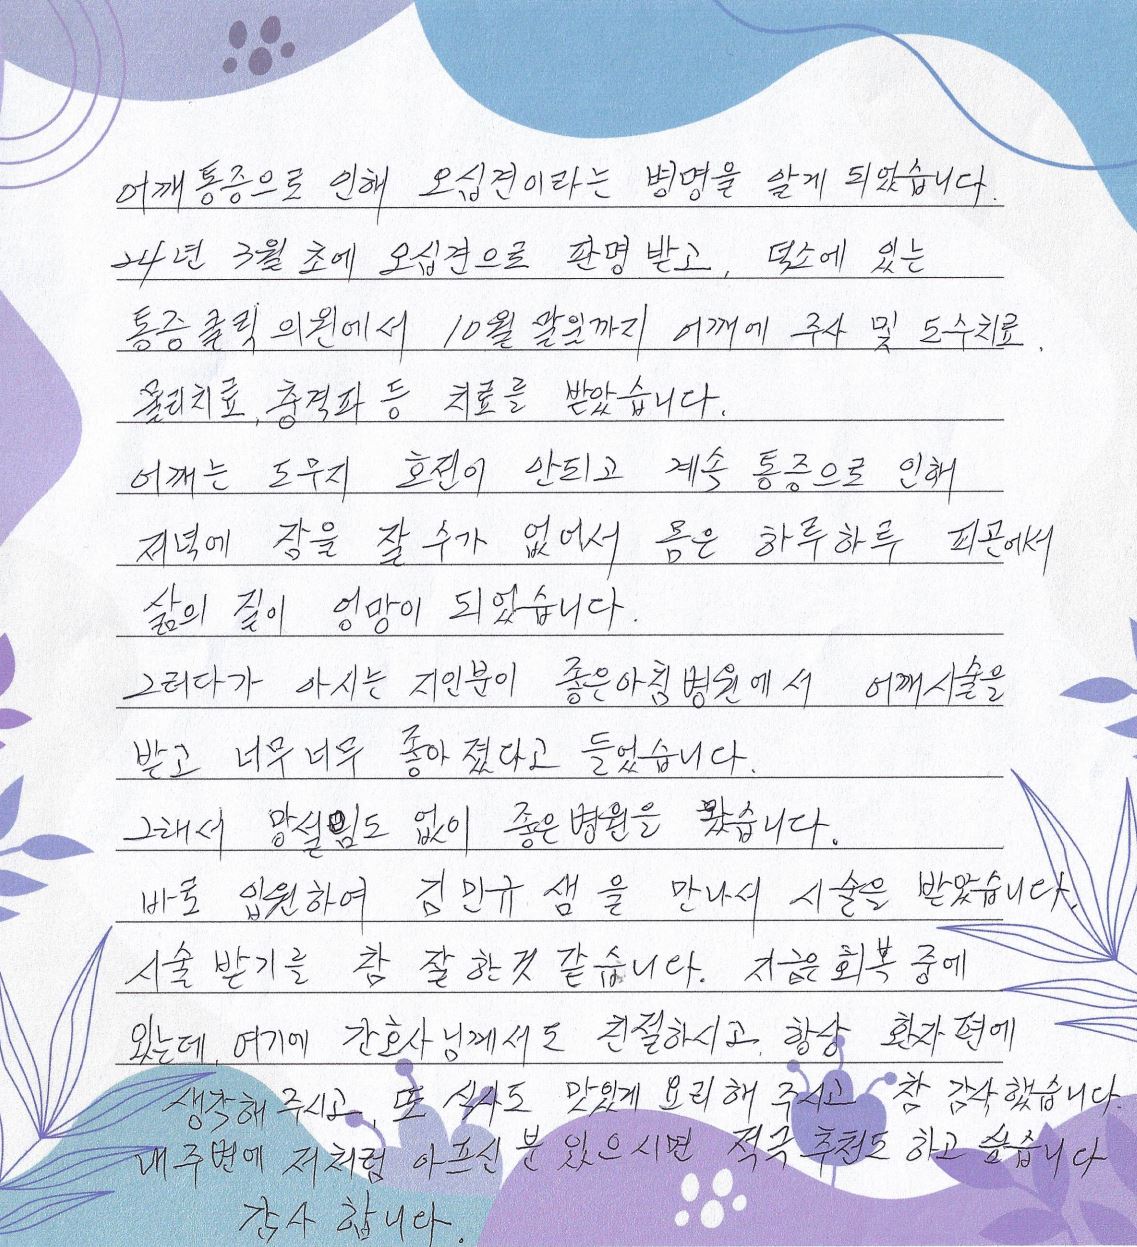 어깨통증으로 인해 오십견이라는 병명을 알게 되었습니다.
24년 3월 초에 오십견으로 판명 받고, 덕소에 있는
통증클릭 의원에서 10월 말일까지 어깨에 주사 및 도수치료,
물리치료, 충격파 등 치료를 받았습니다.
어깨는 도무지 호전이 안되고 계속 통증으로 인해
저녁에 잠을 잘 수가 없어서 몸은 하루하루 피곤에서
삶의 질이 엉망이 되었습니다.
그러다가 아시는 지인분이 좋은아침병원에서 어깨시술을
받고 너무너무 좋아졌다고 들었습니다.
그래서 망설임도 없이 좋은병원을 왔습니다.
바로 입원하여 김민규 샘을 만나서 시술을 받았습니다.
시술 받기를 참 잘한것 같습니다. 지금은 회복 중에
있는데, 여기에 간호사님께서도 친절하시고, 항상 환자편에
생각해 주시고, 또 식사도 맛있게 요리해 주시고 참 감사했습니다.
내 주변에 저처럼 아프신 분 있으시면 적극 추천도 하고 싶습니다
감사 합니다.